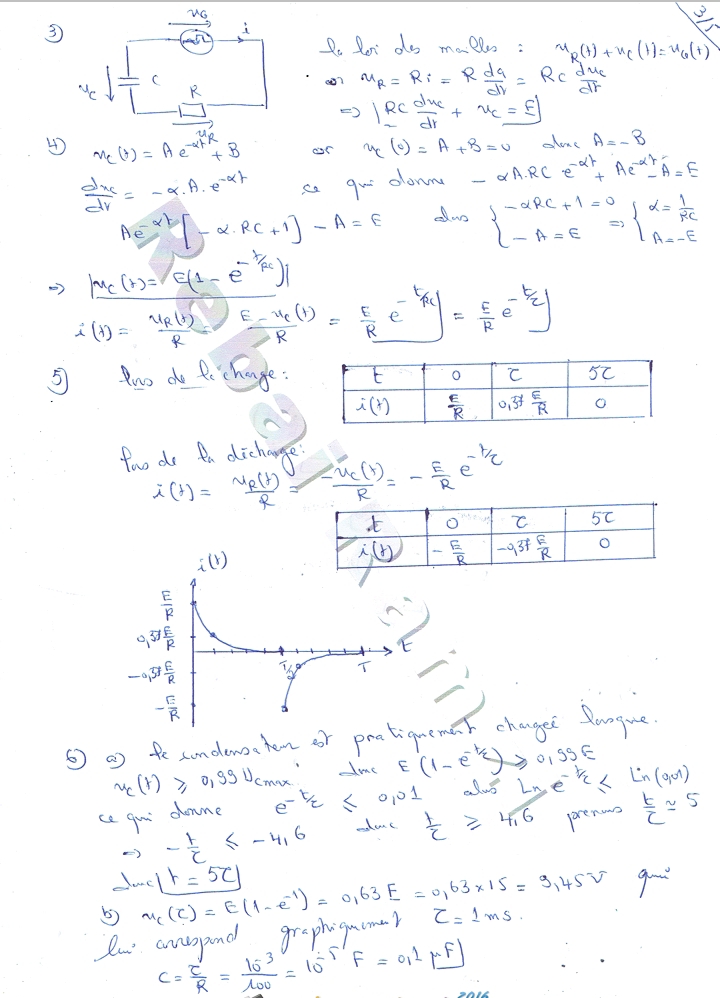 3/5
3)
u_G
i
u_C
C
R
u_R
la loi des mailles : u_R(t) + u_C(t) = u_G(t)
or u_R = Ri = R dq/dt = RC du_C/dt
⇒ RC du_C/dt + u_C = E
4)
u_C(t) = A e^{-αt} + B or u_C(0) = A + B = 0 donc A = -B
du_C/dt = -α.A.e^{-αt} ce qui donne - αA.RC e^{-αt} + Ae^{-αt} - A = E
Ae^{-αt} [-α.RC + 1] - A = E dans { -αRC + 1 = 0 ⇒ { α = 1/RC
- A = E A = -E
⇒ u_C(t) = E(1 - e^{-t/RC})
i(t) = u_R(t)/R = E - u_C(t)/R = E/R e^{-t/RC} = E/R e^{-t/τ}
5) lors de la charge :
t 0 τ 5τ
i(t) E/R 0,37 E/R 0
lors de la décharge :
i(t) = u_R(t)/R = -u_C(t)/R = - E/R e^{-t/τ}
t 0 τ 5τ
i(t) - E/R -0,37 E/R 0
i(t)
E/R
0,37 E/R
-0,37 E/R
-E/R
T/2
T
t
6) a) le condensateur est pratiquement chargée lorsque.
u_C(t) ≥ 0,99 U_Cmax. donc E(1 - e^{-t/τ}) ≥ 0,99E
ce qui donne e^{-t/τ} ≤ 0,01 alors Ln e^{-t/τ} ≤ Ln(0,01)
⇒ - t/τ ≤ -4,6 donc t/τ ≥ 4,6 prenons t/τ ≃ 5
donc t = 5τ
b) u_C(τ) = E(1 - e^{-1}) = 0,63 E = 0,63 x 15 = 9,45 V qui
lui correspond graphiquement τ = 1 ms.
C = τ/R = 10^{-3}/100 = 10^{-5} F = 0,1 μF
Rebai_Ram
2016